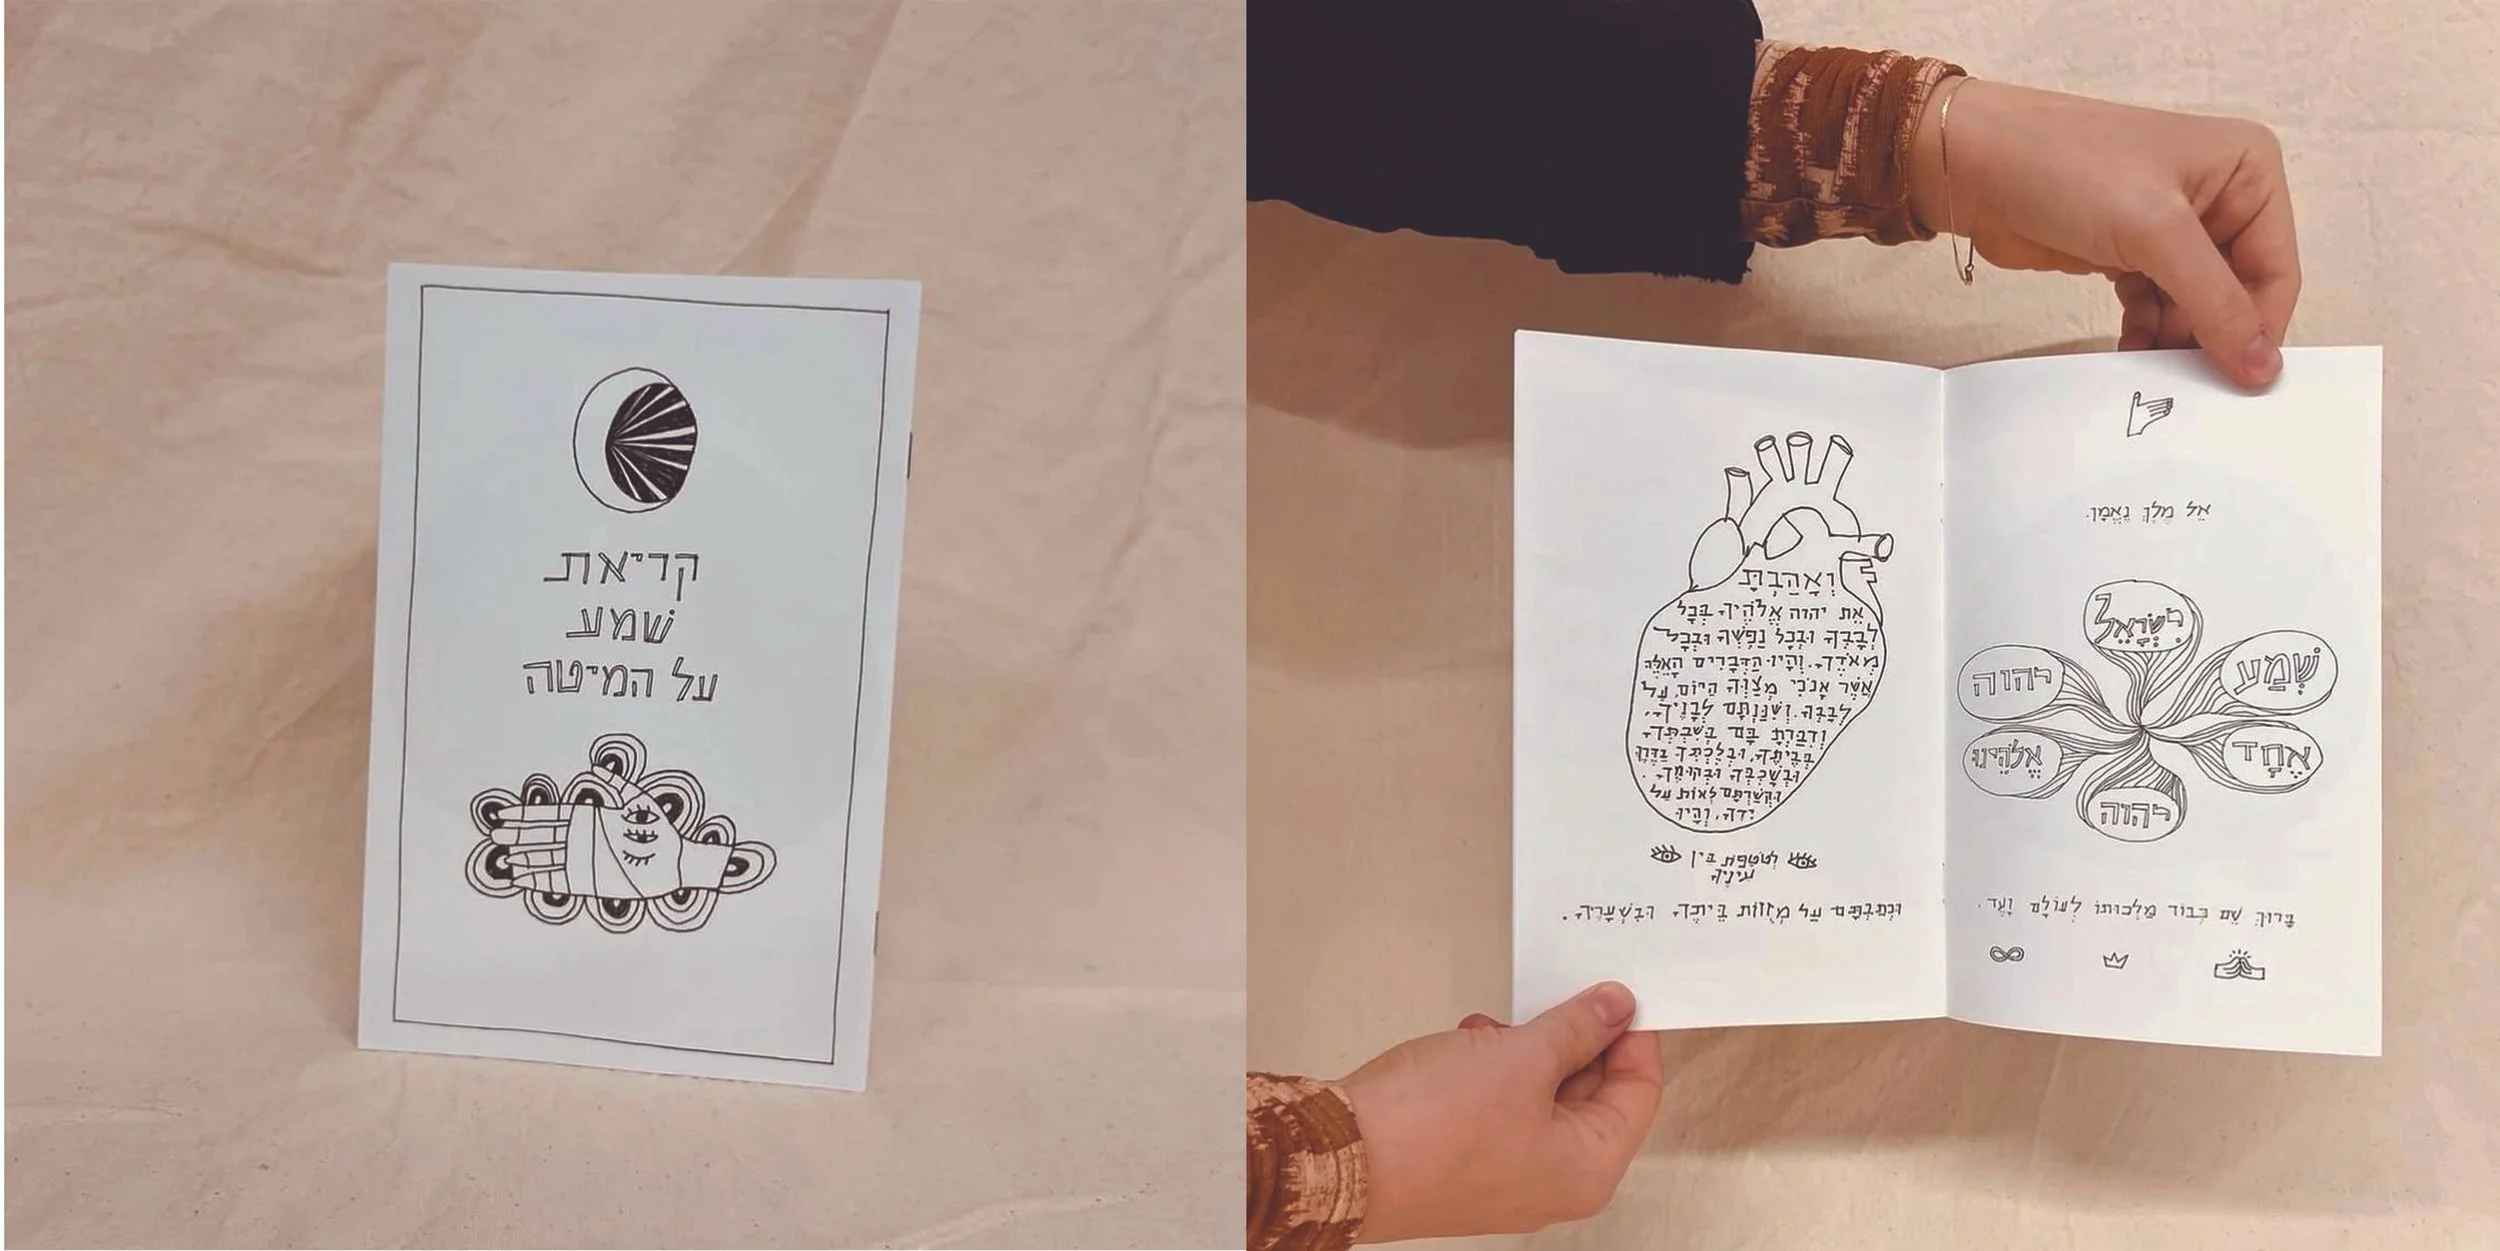 קריאת
שמע
על המיטה
אֵל מֶלֶךְ נֶאֱמָן.
שְׁמַע
יִשְׂרָאֵל
יהוה
אֱלֹהֵינוּ
יהוה
אֶחָד
בָּרוּךְ שֵׁם כְּבוֹד מַלְכוּתוֹ לְעוֹלָם וָעֶד.
וְאָהַבְתָּ
אֵת יהוה אֱלֹהֶיךָ בְּכָל
לְבָבְךָ וּבְכָל נַפְשְׁךָ וּבְכָל
מְאֹדֶךָ. וְהָיוּ הַדְּבָרִים הָאֵלֶּה
אֲשֶׁר אָנֹכִי מְצַוְּךָ הַיּוֹם עַל
לְבָבֶךָ. וְשִׁנַּנְתָּם לְבָנֶיךָ,
וְדִבַּרְתָּ בָּם בְּשִׁבְתְּךָ
בְּבֵיתֶךָ, וּבְלֶכְתְּךָ בַדֶּרֶךְ
וּבְשָׁכְבְּךָ וּבְקוּמֶךָ.
וּקְשַׁרְתָּם לְאוֹת עַל
יָדֶךָ, וְהָיוּ
לְטֹטָפֹת בֵּין
עֵינֶיךָ
וּכְתַבְתָּם עַל מְזֻזוֹת בֵּיתֶךָ וּבִשְׁעָרֶיךָ.